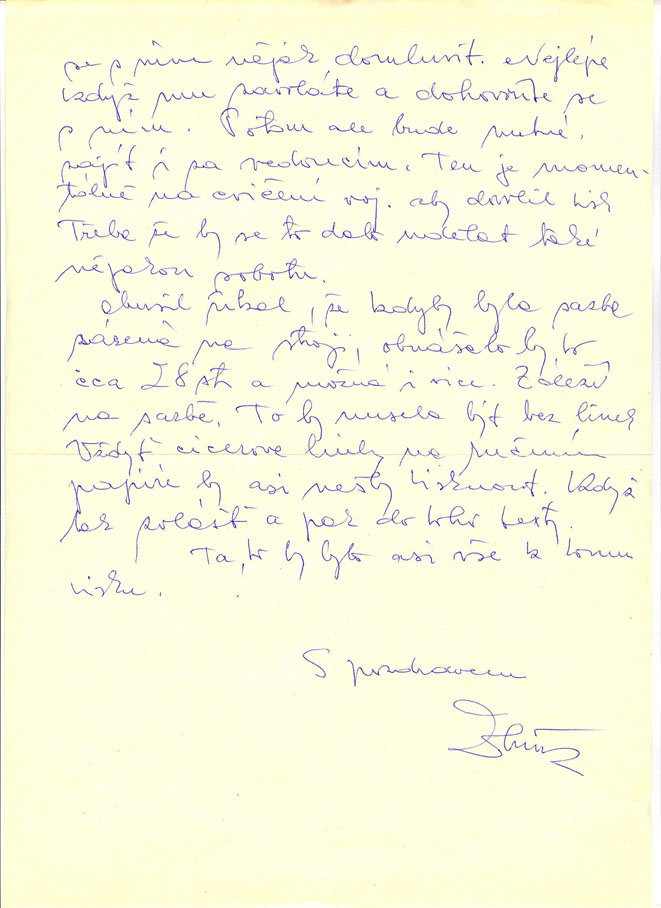 se s ním nějak domluvit. Nejlépe
když mu zavoláte a dohovoříte se
s ním. Potom ale bude nutné,
zajít i za vedoucím. Ten je momen-
tálně na cvičení voj. aby dovolil tisk
Třeba že by se to dalo udělat také
nějakou sobotu.
říkal, že kdyby byla sazba
sázená na stroji, obnášelo by to
cca 28 str a možná i více. Záleží
na sazbě. To by musela být bez linek
Vždyť cicerove linky na ručním
papíře by asi nešly tisknout. Když
tak zvlášť a pak do toho texty.
Ta, to by bylo asi vše k tomu
tisku.
S pozdravem